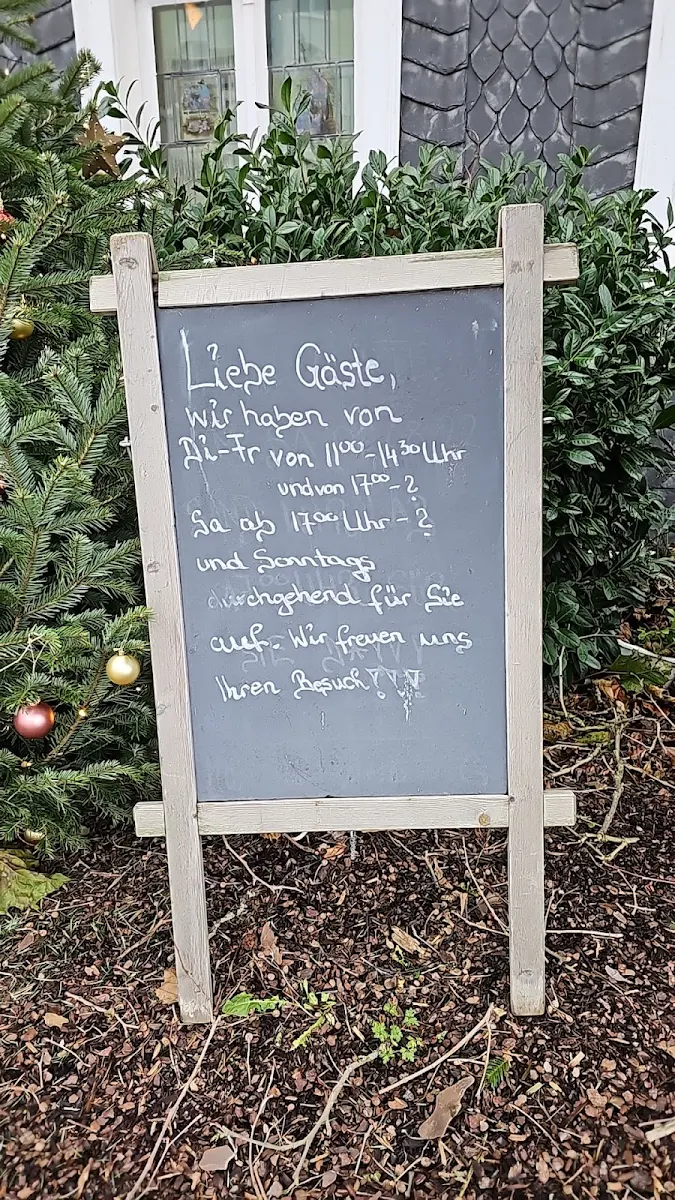 Liebe Gäste,
wir haben von
Di-Fr von 11⁰⁰-14³⁰ Uhr
und von 17⁰⁰-?
Sa ab 17⁰⁰ Uhr-?
und Sonntags
durchgehend für Sie
auf. Wir freuen uns
Ihren Besuch!!!!